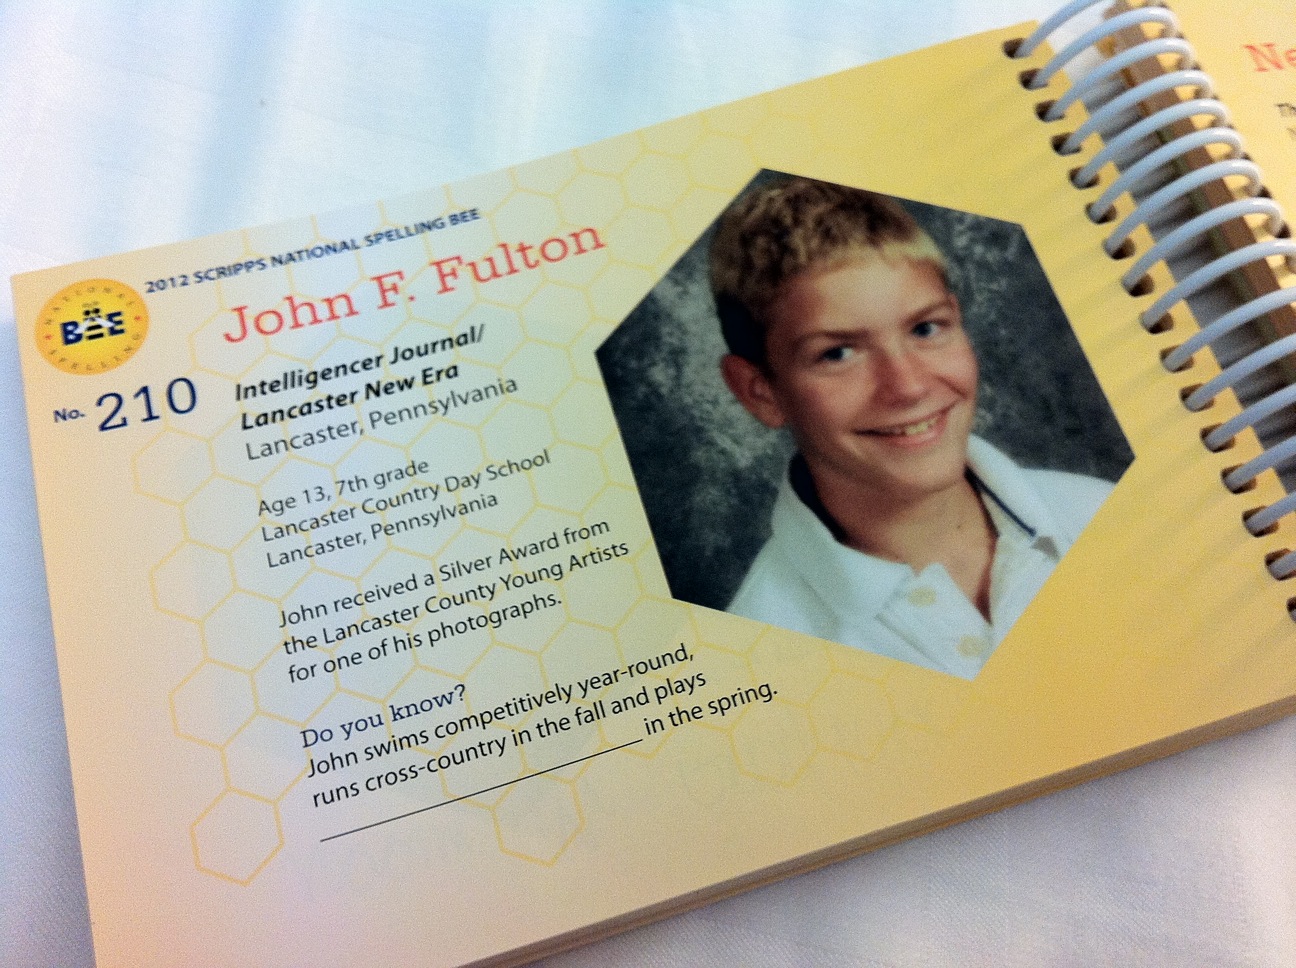 2012 SCRIPPS NATIONAL SPELLING BEE
John F. Fulton
NATIONAL
BEE
SPELLING
No. 210
Intelligencer Journal/
Lancaster New Era
Lancaster, Pennsylvania
Age 13, 7th grade
Lancaster Country Day School
Lancaster, Pennsylvania
John received a Silver Award from
the Lancaster County Young Artists
for one of his photographs.
Do you know?
John swims competitively year-round,
runs cross-country in the fall and plays
____________________ in the spring.
Ne